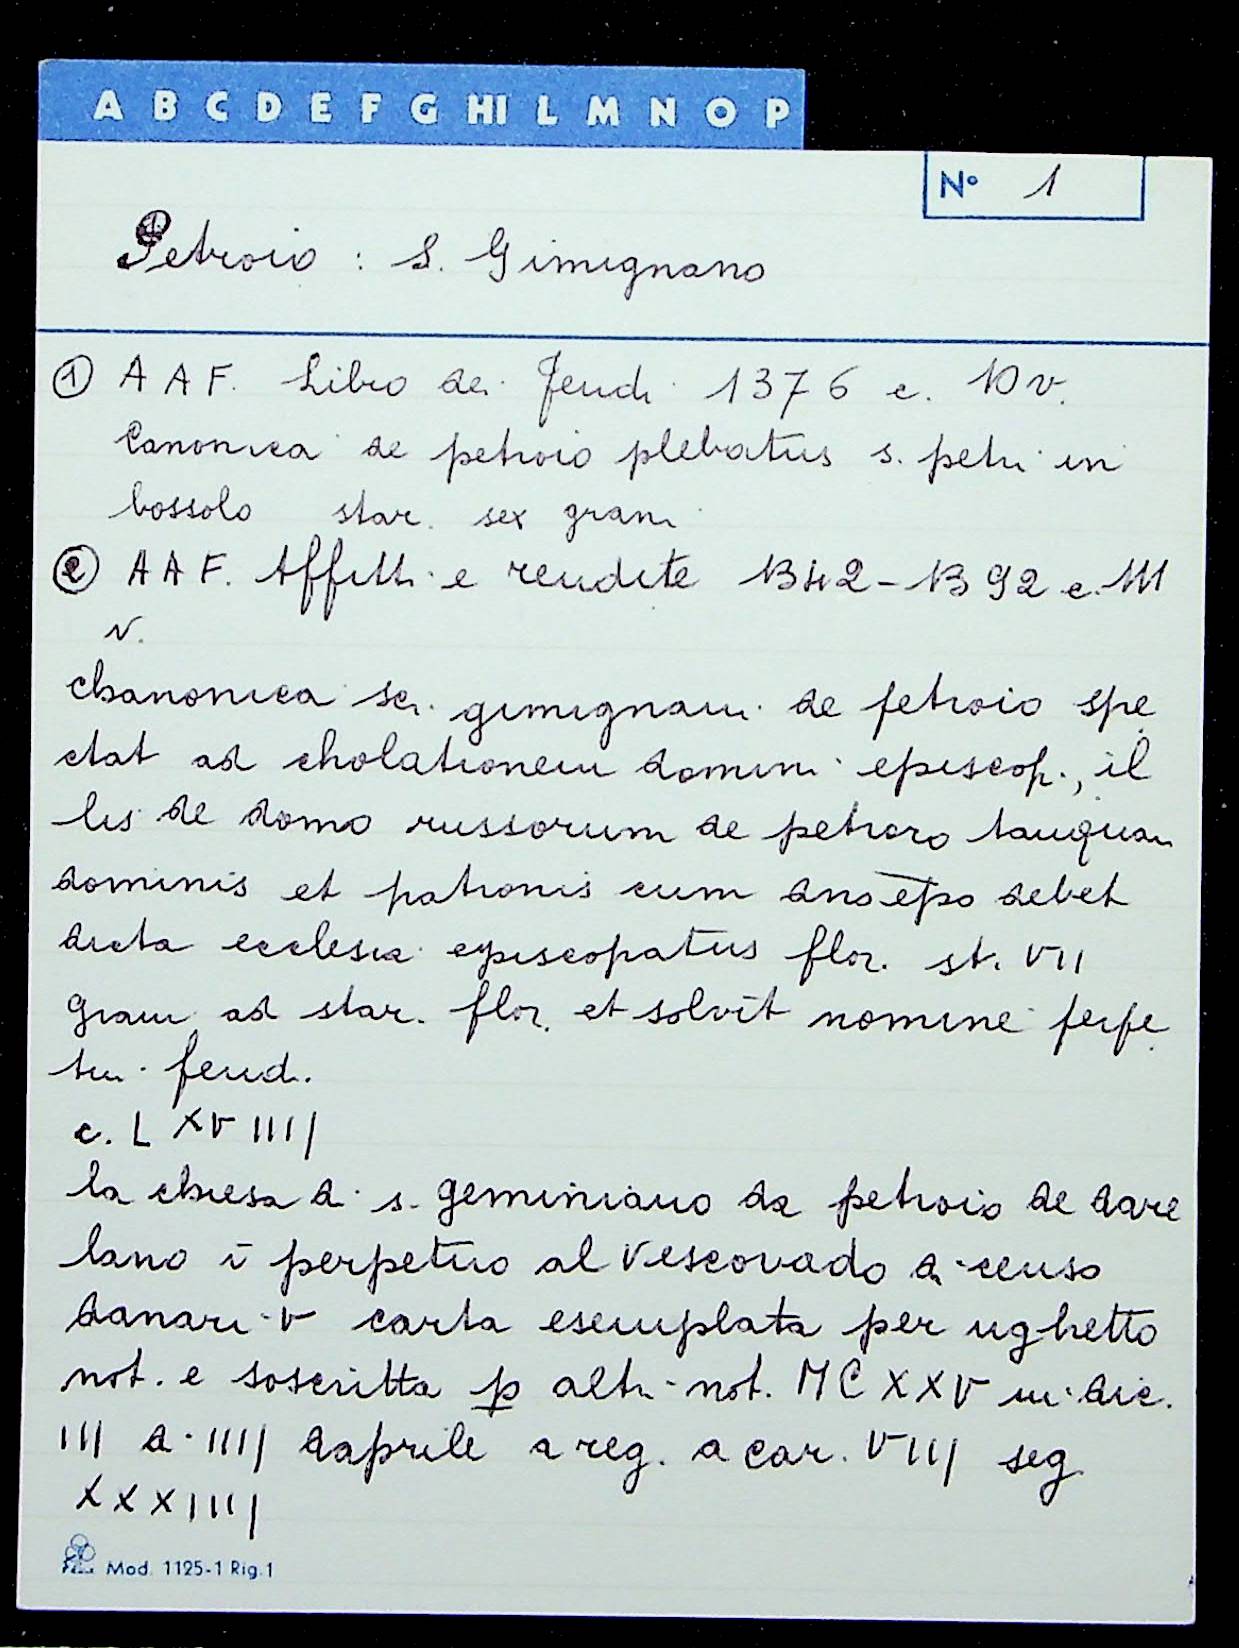 A B C D E F G HI L M N O P
N° 1
Petroio : S. Gimignano
① A A F. Libro dei feudi 1376 c. 10 v.
Canonica de petroio plebatus s. petri in
bossolo star. sex grani
② A A F. Affitti e rendite 1342-1392 c. 111
v.
chanonica sci. gimignani de petroio spe
ctat ad cholationem domini episcop., il
lis de domo russorum de petroro tanquam
dominis et patronis cum dno epo debet
dicta ecclesia episcopatus flor. st. VII
grani ad star. flor. et solvit nomine perpe
tui feudi.
c. L XV IIII
la chiesa di s. geminiano da petroio de dare
lano ī perpetuo al Vescovado di censo
danari V carta esemplata per ughetto
not. e soscritta p altri not. MC XXV in dic.
III a IIII daprile a reg. a car. VIII seg
XXXIIII
Mod. 1125-1 Rig. 1